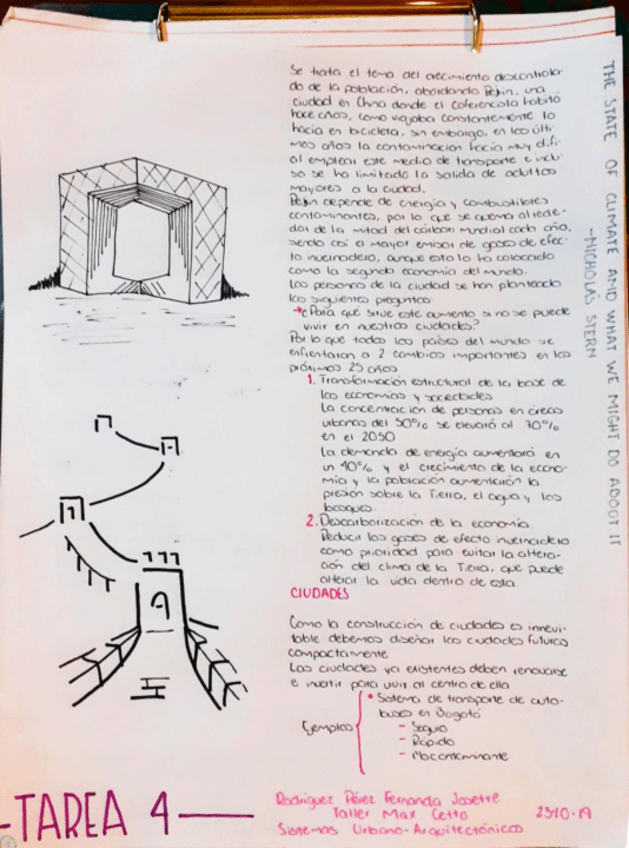 Se trata el tema del crecimiento descontrola-
do de la población, abordando Pekín, una
ciudad en China donde el coferencista habitó
hace años, como viajaba constantemente lo
hacía en bicicleta, sin embargo, en los últi-
mos años la contaminación hacía muy difí-
cil emplear este medio de transporte e inclu-
so se ha limitado la salida de adultos
mayores a la ciudad.
Pekín depende de energía y combustibles
contaminantes, por lo que se quema alrede-
dor de la mitad del carbon mundial cada año,
siendo así el mayor emisor de gases de efec-
to invernadero, aunque esto lo ha colocado
como la segunda economía del mundo.
Las personas de la ciudad se han planteado
las siguientes preguntas:
→¿Para qué sirve este aumento si no se puede
vivir en nuestras ciudades?
Por lo que todos los países del mundo se
enfrentaran a 2 cambios importantes en los
próximos 25 años
1. Transformación estructural de la base de
las economías y sociedades
La concentración de personas en áreas
urbanas del 50% se elevará al 70%
en el 2050
La demanda de energía aumentará en
un 40% y el crecimiento de la econo-
mía y la población aumentarán la
presión sobre la Tierra, el agua y los
bosques.
2. Descarbonización de la economía
Reducir los gases de efecto invernadero
como prioridad para evitar la altera-
ción del clima de la Tierra, que puede
alterar la vida dentro de esta
CIUDADES
Como la construcción de ciudades es innevi-
table debemos diseñar las ciudades futuras
compactamente
Las ciudades ya existentes deben renovarse
e invertir para vivir al centro de ella
Ejemplos
• Sistema de transporte de auto-
buses en Bogotá
- Seguro
- Rápido
- No contaminante
THE STATE OF CLIMATE AND WHAT WE MIGHT DO ABOUT IT
-NICHOLAS STERN
-TAREA 4-
Rodríguez Pérez Fernanda Josette
Taller Max Cetto
Sistemas Urbano-Arquitectónicos
23·10·19